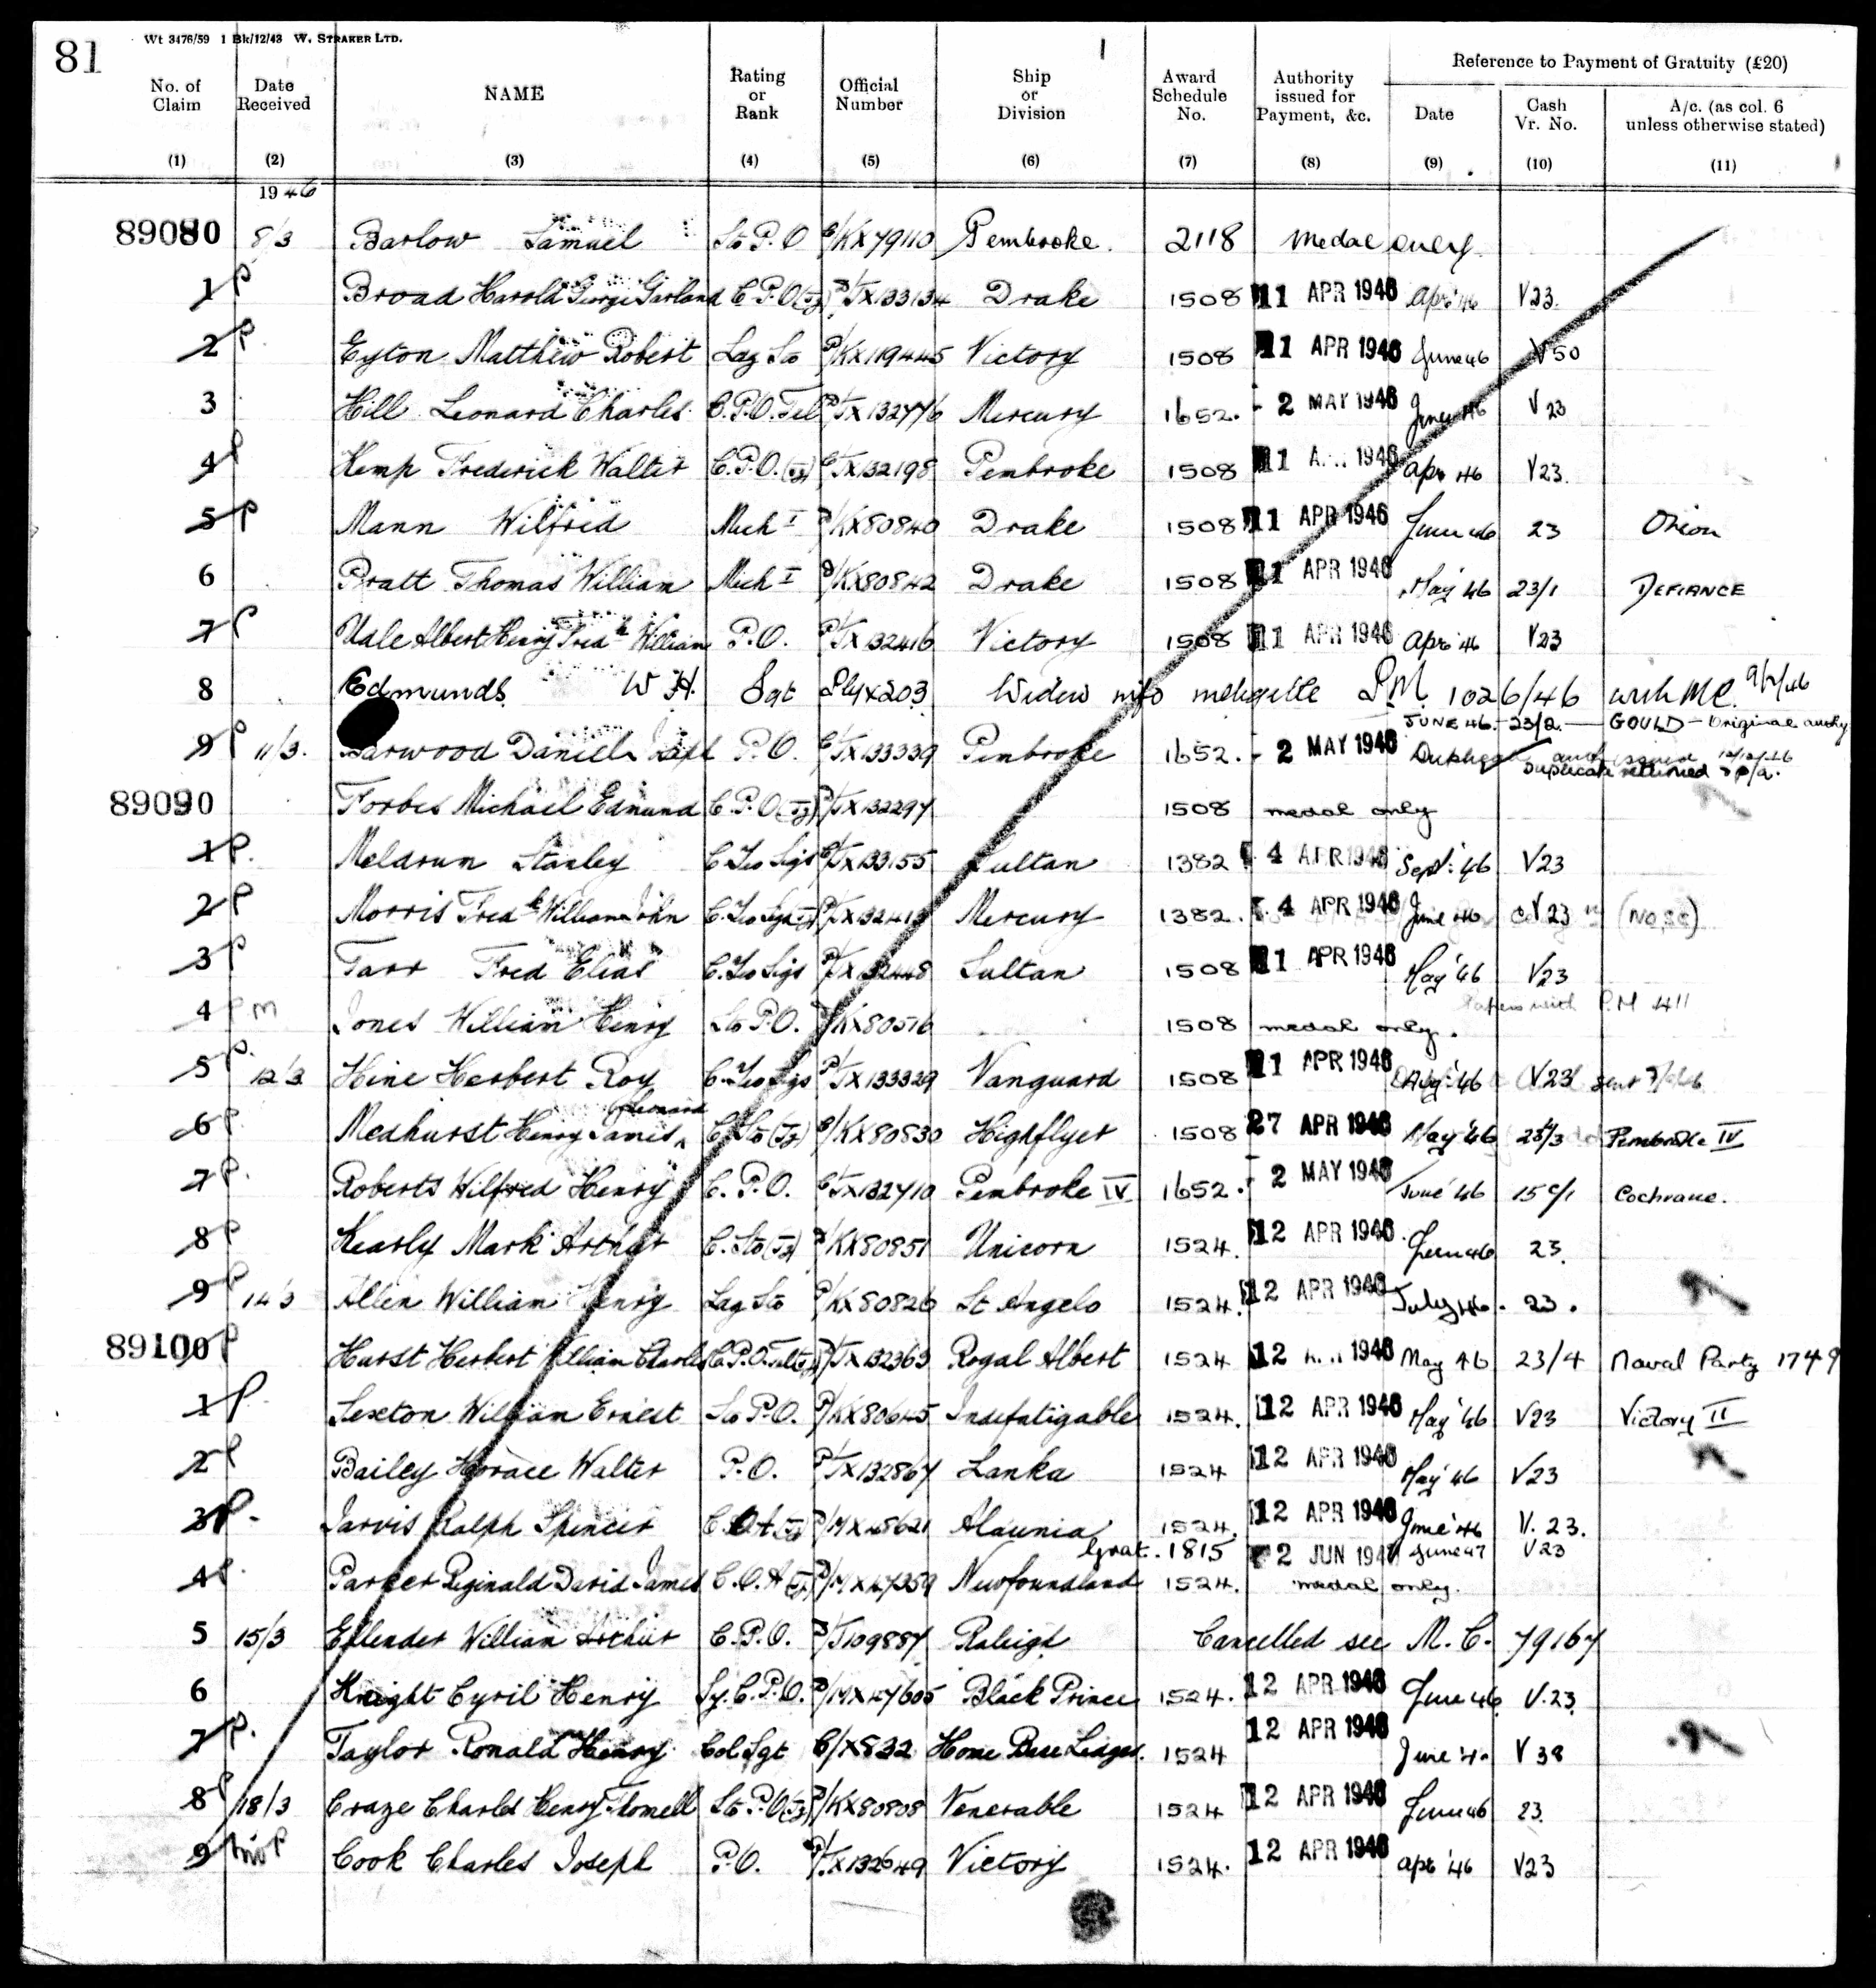 81
Wt 3476/59 1 Bk/12/43 W. STRAKER LTD.
No. of Claim Date Received NAME Rating or Rank Official Number Ship or Division Award Schedule No. Authority issued for Payment, &c. Reference to Payment of Gratuity (£20)
Date Cash Vr. No. A/c. (as col. 6 unless otherwise stated)
(1) (2) (3) (4) (5) (6) (7) (8) (9) (10) (11)
1946
89080 8/3 Barlow Samuel Sto P.O C/KX79110 Pembroke. 2118 medal only
1 P Broad Harold George Garland C.P.O(Tg) D/JX133134 Drake 1508 11 APR 1946 Apr '46 V23.
2 P Eyton Matthew Robert Ldg Sto P/KX119445 Victory 1508 11 APR 1946 June 46 V50
3 Hill Leonard Charles C.P.O.Tel P/JX132776 Mercury 1652. - 2 MAY 1946 June 46 V23
4 P Kemp Frederick Walter C.P.O.(Tg) C/JX132198 Pembroke 1508 11 1946 Apr 46 V23.
5 P Mann Wilfred Mech I D/KX80840 Drake 1508 11 APR 1946 June 46 23 Orion
6 Pratt Thomas William Mech I D/KX80842 Drake 1508 11 APR 1946 May '46 23/1 DEFIANCE
7 P Udle Albert Henry Fredk William P.O. P/JX132416 Victory 1508 11 APR 1946 Apr '46 V23
8 Edmunds W H. Sgt Ply X203 Widow info P.M. 1026/46 with MC.
JUNE 46. 23/2. — GOULD — Original
9 P 11/3. Daniel P.O. C/JX133339 Pembroke 1652. - 2 MAY 1946 issued
Duplicate returned
89090 Forbes Michael Edmund C.P.O.(Tg) P/JX132297 1508 medal only
1 P. Meldrum Stanley C.Yeo Sigs C/JX133155 Sultan 1382 4 APR 1946 Sept. '46 V23
2 P Morris Fredk William John C.Yeo Sigs P/JX132413 Mercury 1382. 4 APR 1946 June 46 V23
3 P Tarr Fred Elias C.Yeo Sigs P/JX132448 Sultan 1508 11 APR 1946 May '46 V23
with P.M 411
4 P m Jones William Henry Sto P.O. KX80516 1508 medal only.
5 P. 12/3 Hine Herbert Roy C.Yeo Sigs P/JX133329 Vanguard 1508 11 APR 1946 Aug '46 V23 sent
Leonard
6 P. Medhurst Henry James C.Sto (Tg) C/KX80830 Highflyer 1508 27 APR 1946 May '46 Pembroke IV
7 P. Roberts Wilfred Henry C.P.O. C/JX132710 Pembroke IV 1652. - 2 MAY 1946 June '46 15c/1 Cochrane.
8 P Kearly Mark Arthur C.Sto (Tg) KX80851 Unicorn 1524. 12 APR 1946 June 46 23.
9 P 14/3 Allen William Henry Ldg Sto P/KX80826 St Angelo 1524. 12 APR 1946 July 46. 23.
89100 P Hurst Herbert William Charles C.P.O.Tel P/JX132363 Royal Albert 1524 12 1946 May 46 23/4 Naval Party 1749
1 P. Sexton William Ernest Sto P.O. P/KX80645 Indefatigable 1524. 12 APR 1946 May '46 V23 Victory II
2 P Bailey Horace Walter P.O. P/JX132867 Lanka 1524 12 APR 1946 May '46 V23
3 P. Jarvis Ralph Spencer MX48621 Alaunia 1524. 12 APR 1946 June '46 V. 23.
Grat. 1815 2 JUN 1947 June 47 V23
4 P. Parker Reginald David James MX47359 Newfoundland 1524. medal only.
5 15/3 Ellender William Arthur C.P.O. D/J109887 Raleigh Cancelled see M.C. 79167
6 Knight Cyril Henry Sy. C.P.O. MX47605 Black Prince 1524. 12 APR 1946 June 46 V.23.
7 P. Taylor Ronald Henry Col Sgt C/X832 Home Base Ledger. 1524 12 APR 1946 June V 38
8 P 18/3 Craze Charles Henry Thomell Sto P.O(Tg) D/KX80808 Venerable 1524 12 APR 1946 June 46 23.
9 P Cook Charles Joseph P.O. P/JX132649 Victory 1524. 12 APR 1946 Apr '46 V23